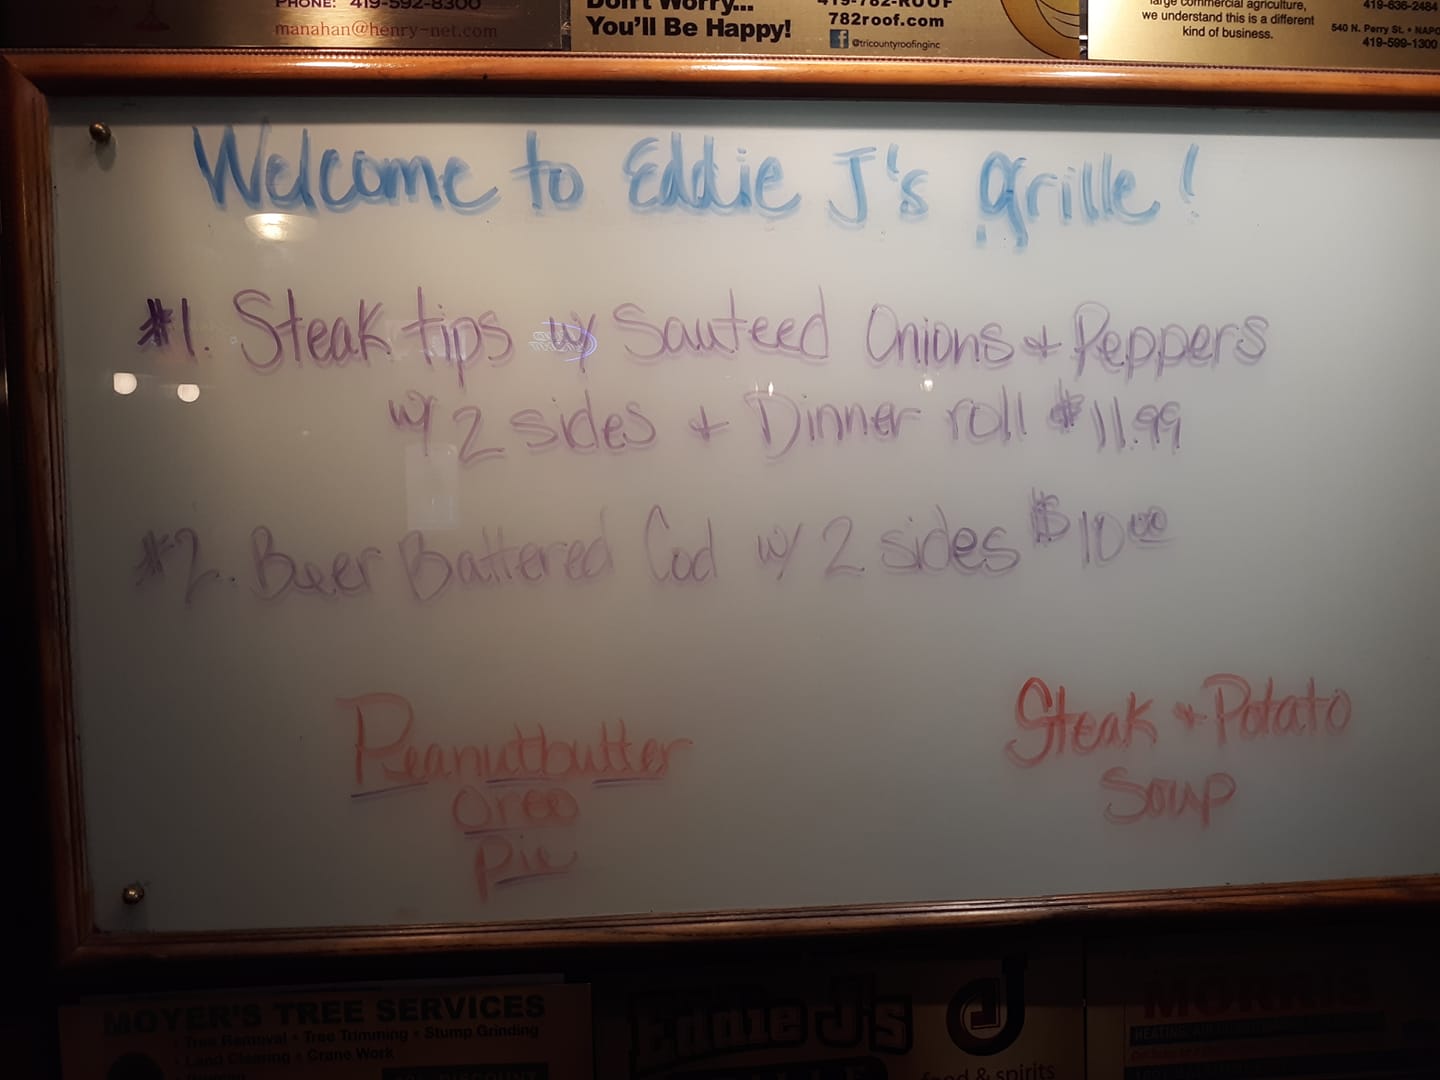 PHONE: 419-592-8300
manahan@henry-net.com
Don't Worry...
You'll Be Happy!
419-782-ROOF
782roof.com
@tricountyroofinginc
large commercial agriculture,
we understand this is a different
kind of business.
419-636-2484
540 N. Perry St. • NAPO
419-599-1300
Welcome to Eddie J's Grille!
#1. Steak tips w/ Sauteed Onions + Peppers
w/ 2 sides + Dinner roll $11.99
#2. Beer Battered Cod w/ 2 sides $10.00
Peanutbutter
Oreo
Pie
Steak + Potato
Soup
MOYER'S TREE SERVICES
• Tree Removal • Tree Trimming • Stump Grinding
• Land Clearing • Crane Work
DISCOUNT
Eddie J's
food & spirits
MORRIS